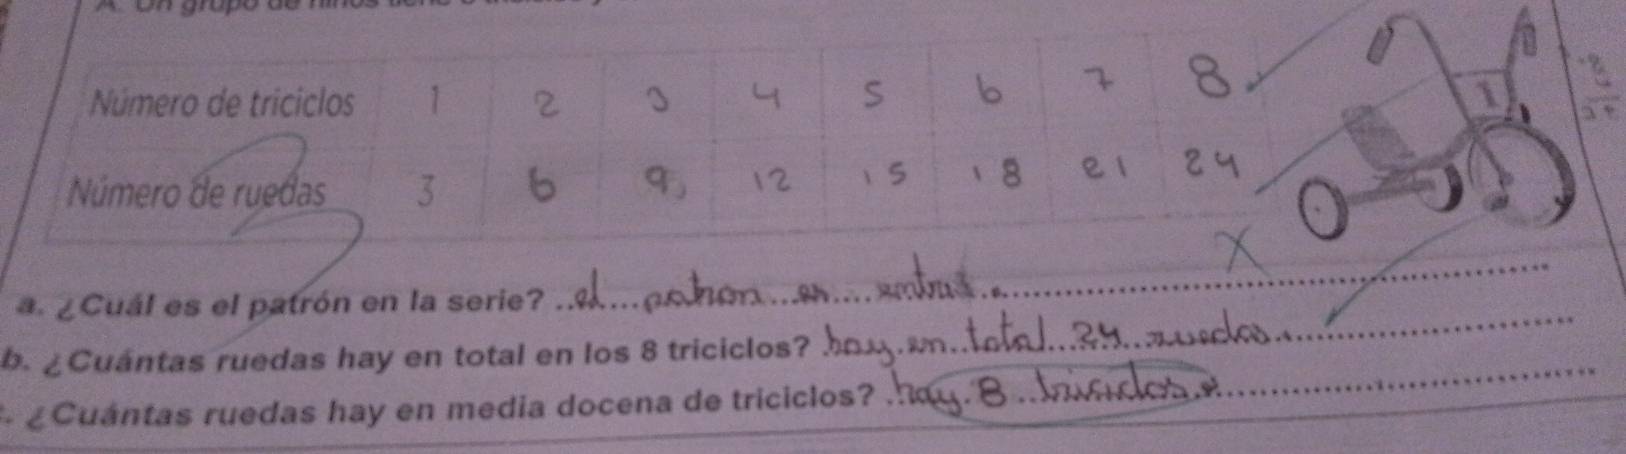 A. Un grupo de niños
Número de triciclos 1 2 3 4 5 6 7 8
Número de ruedas 3 6 9 12 15 18 21 24
a. ¿Cuál es el patrón en la serie? el patron es
b. ¿Cuántas ruedas hay en total en los 8 triciclos? hay en total 24 ruedas
. ¿Cuántas ruedas hay en media docena de triciclos? hay 8 triciclos.